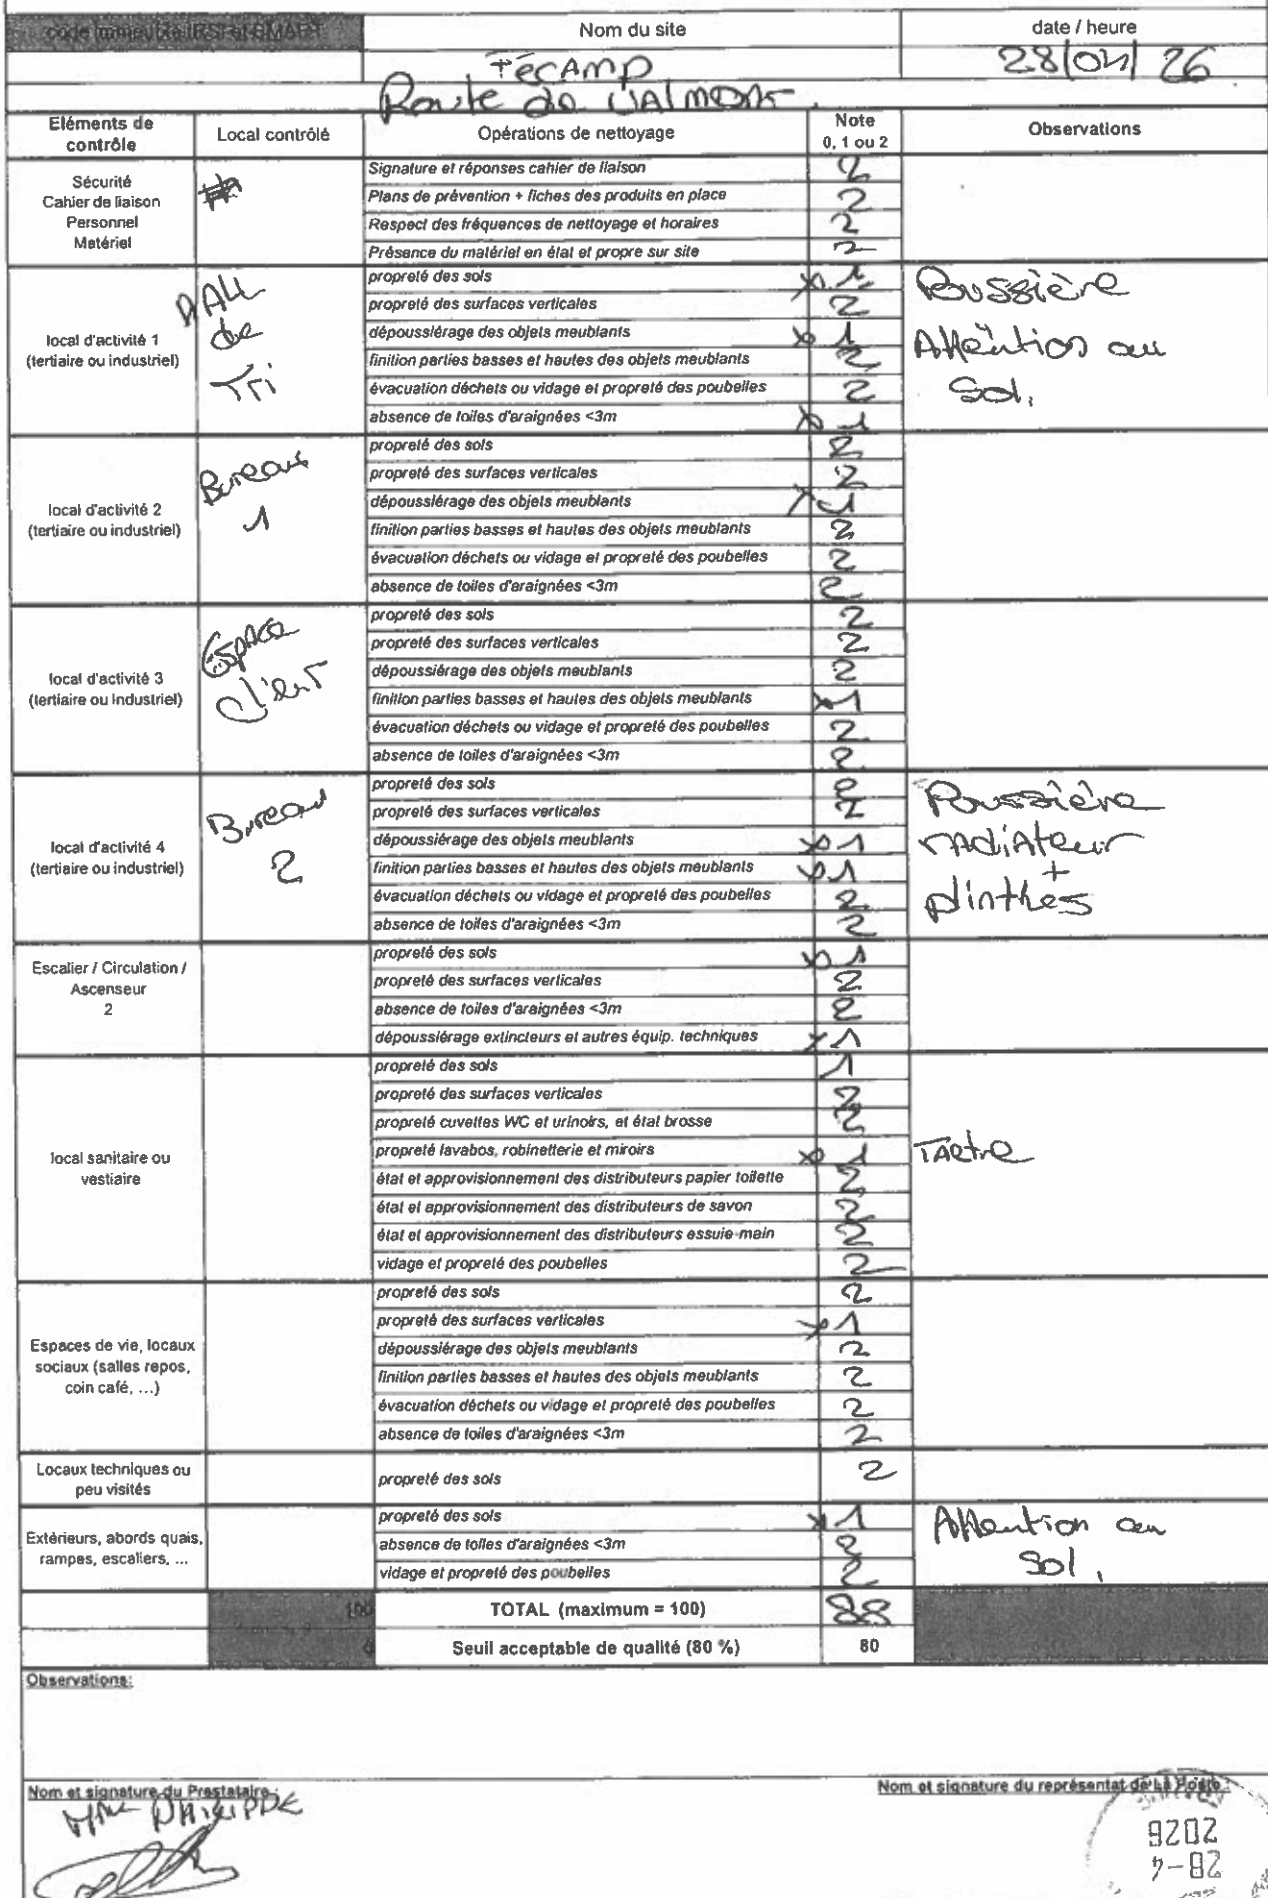 Nom du site
date / heure
FECAMP
28/04/26
Route de VALMONT.
Eléments de contrôle
Local contrôlé
Opérations de nettoyage
Note
0, 1 ou 2
Observations
Sécurité
Cahier de liaison
Personnel
Matériel
Signature et réponses cahier de liaison 2
Plans de prévention + fiches des produits en place 2
Respect des fréquences de nettoyage et horaires 2
Présence du matériel en état et propre sur site 2
local d'activité 1
(tertiaire ou industriel)
HALL
de
Tri
propreté des sols x 1
propreté des surfaces verticales 2
dépoussiérage des objets meublants x 1
finition parties basses et hautes des objets meublants 2
évacuation déchets ou vidage et propreté des poubelles 2
absence de toiles d'araignées <3m x 1
Poussière
Attention au
Sol.
local d'activité 2
(tertiaire ou industriel)
Bureau
1
propreté des sols 2
propreté des surfaces verticales 2
dépoussiérage des objets meublants x 1
finition parties basses et hautes des objets meublants 2
évacuation déchets ou vidage et propreté des poubelles 2
absence de toiles d'araignées <3m 2
local d'activité 3
(tertiaire ou industriel)
Espace
client
propreté des sols 2
propreté des surfaces verticales 2
dépoussiérage des objets meublants 2
finition parties basses et hautes des objets meublants x 1
évacuation déchets ou vidage et propreté des poubelles 2
absence de toiles d'araignées <3m 2
local d'activité 4
(tertiaire ou industriel)
Bureau
2
propreté des sols 2
propreté des surfaces verticales 2
dépoussiérage des objets meublants x 1
finition parties basses et hautes des objets meublants x 1
évacuation déchets ou vidage et propreté des poubelles 2
absence de toiles d'araignées <3m 2
Poussière
radiateur
+
plinthes
Escalier / Circulation /
Ascenseur
2
propreté des sols x 1
propreté des surfaces verticales 2
absence de toiles d'araignées <3m 2
dépoussiérage extincteurs et autres équip. techniques x 1
local sanitaire ou
vestiaire
propreté des sols 1
propreté des surfaces verticales 2
propreté cuvettes WC et urinoirs, et état brosse 2
propreté lavabos, robinetterie et miroirs x 1
état et approvisionnement des distributeurs papier toilette 2
état et approvisionnement des distributeurs de savon 2
état et approvisionnement des distributeurs essuie-main 2
vidage et propreté des poubelles 2
Tartre
Espaces de vie, locaux
sociaux (salles repos,
coin café, ...)
propreté des sols 2
propreté des surfaces verticales x 1
dépoussiérage des objets meublants 2
finition parties basses et hautes des objets meublants 2
évacuation déchets ou vidage et propreté des poubelles 2
absence de toiles d'araignées <3m 2
Locaux techniques ou
peu visités
propreté des sols 2
Extérieurs, abords quais,
rampes, escaliers, ...
propreté des sols x 1
absence de toiles d'araignées <3m 2
vidage et propreté des poubelles 2
Attention au
sol.
100
TOTAL (maximum = 100) 88
Seuil acceptable de qualité (80 %) 80
Observations:
Nom et signature du Prestataire:
Nom et signature du représentat de La Poste:
Mme
2026
28-4